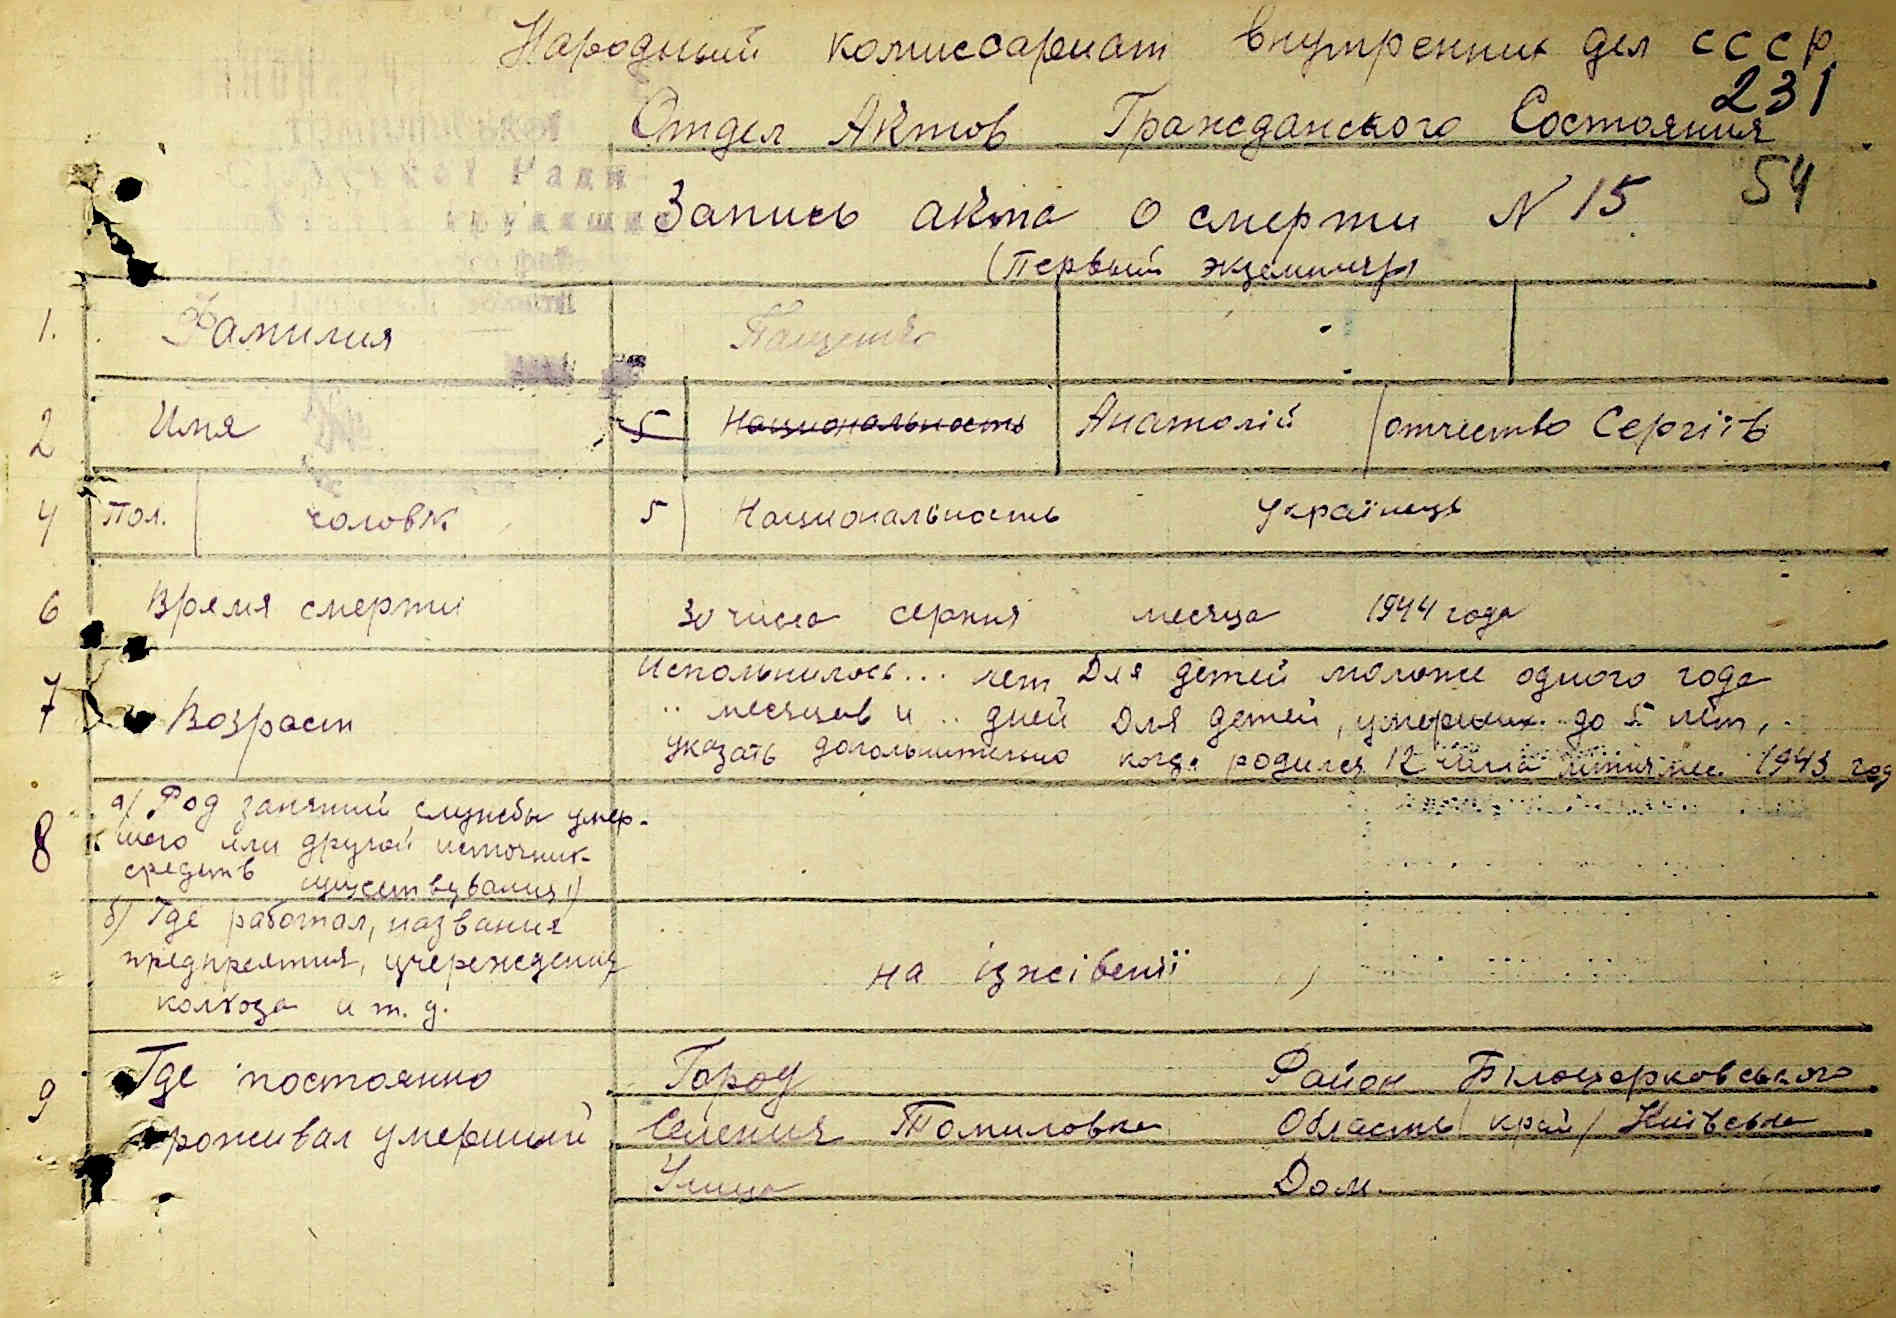 Народный комиссариат внутренних дел СССР
231
Отдел Актов Гражданского Состояния
54
Запись акта о смерти N 15
(Первый экземпляр)
1. Фамилия
2 Имя 5 Национальность Анатолій отчество Сергіїв
4 Пол. чоловік 5 Национальность українець
6 Время смерти 30 числа серпня месяца 1944 года
7 Возраст
Испольнилось... лет Для детей моложе одного года
.. месяцев и .. дней Для детей, умерших до 5 лет,
указать дополнительно когда родился 12 числа мес. 1943 год
8 а) Род занятий службы умер-
шего или другой источник
средств существования)
б) Где работал, названия
предпреятия, учереждения
колхоза и т. д.
на іжівенії
9 Где постоянно
проживал умерший
Город Район Білоцерковського
Селения Томиловка Область/край/ Київська
Улица Дом